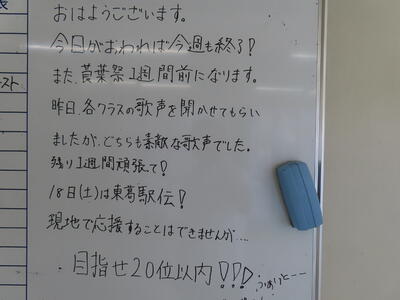 おはようございます。
今日がおわれば今週も終了!
また、莨葉祭1週間前になります。
昨日、各クラスの歌声を聞かせてもらい
ましたが、どちらも素敵な歌声でした。
残り1週間頑張て!
18日(土)は東葛駅伝!
現地で応援することはできませんが…
目指せ20位以内!!!